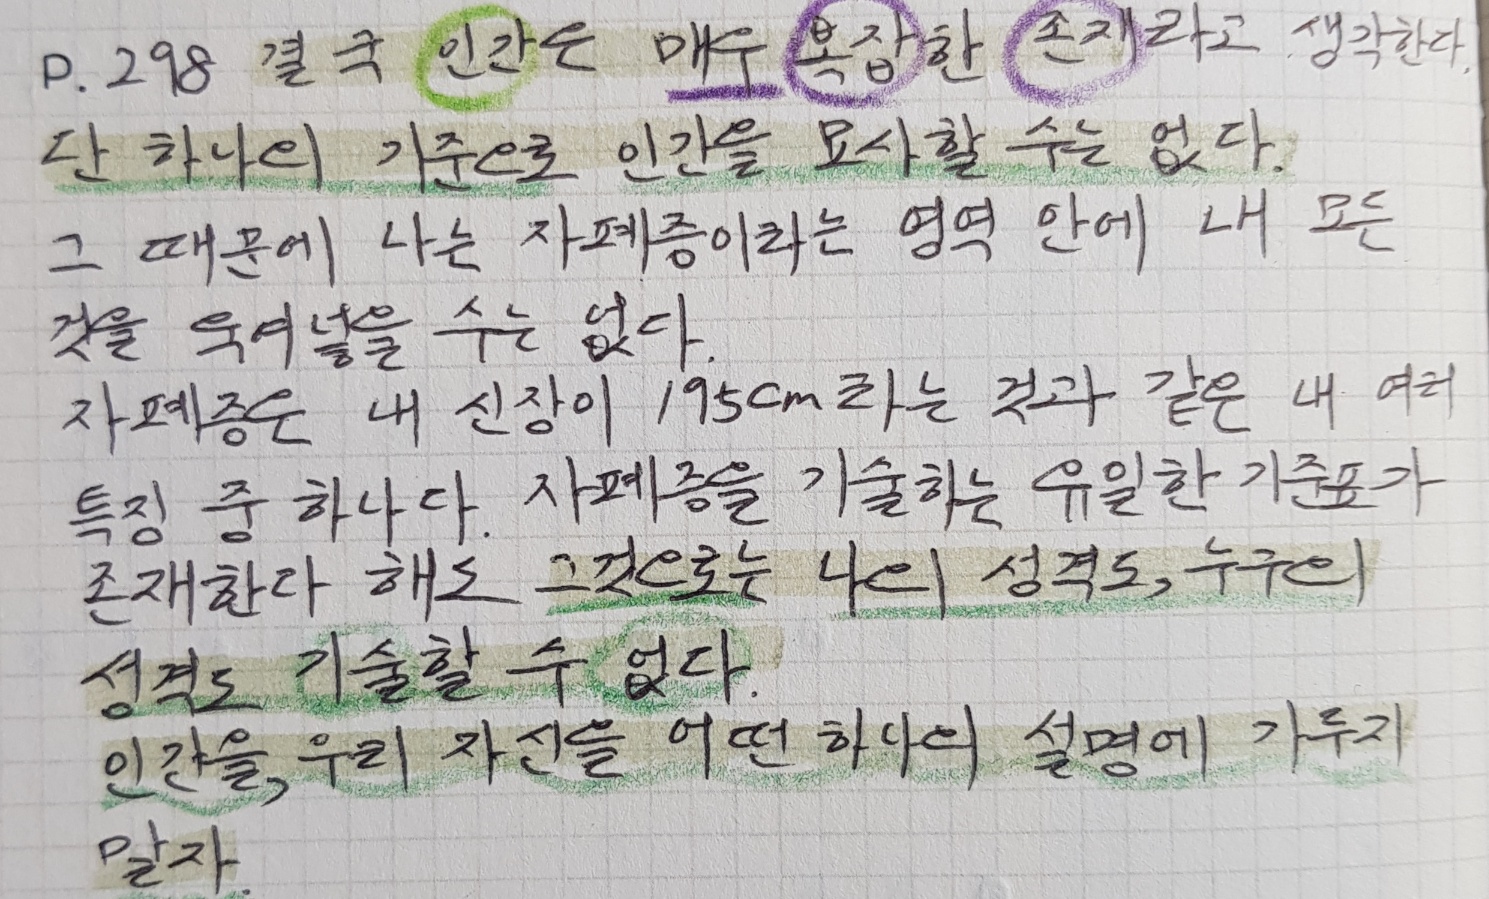 P. 298 결국 인간은 매우 복잡한 존재라고 생각한다.
단 하나의 기준으로 인간을 묘사할 수는 없다.
그 때문에 나는 자폐증이라는 영역 안에 내 모든
것을 욱여넣을 수는 없다.
자폐증은 내 신장이 195cm라는 것과 같은 내 여러
특징 중 하나다. 자폐증을 기술하는 유일한 기준표가
존재한다 해도 그것으로는 나의 성격도, 누구의
성격도 기술할 수 없다.
인간을, 우리 자신을 어떤 하나의 설명에 가두지
말자.